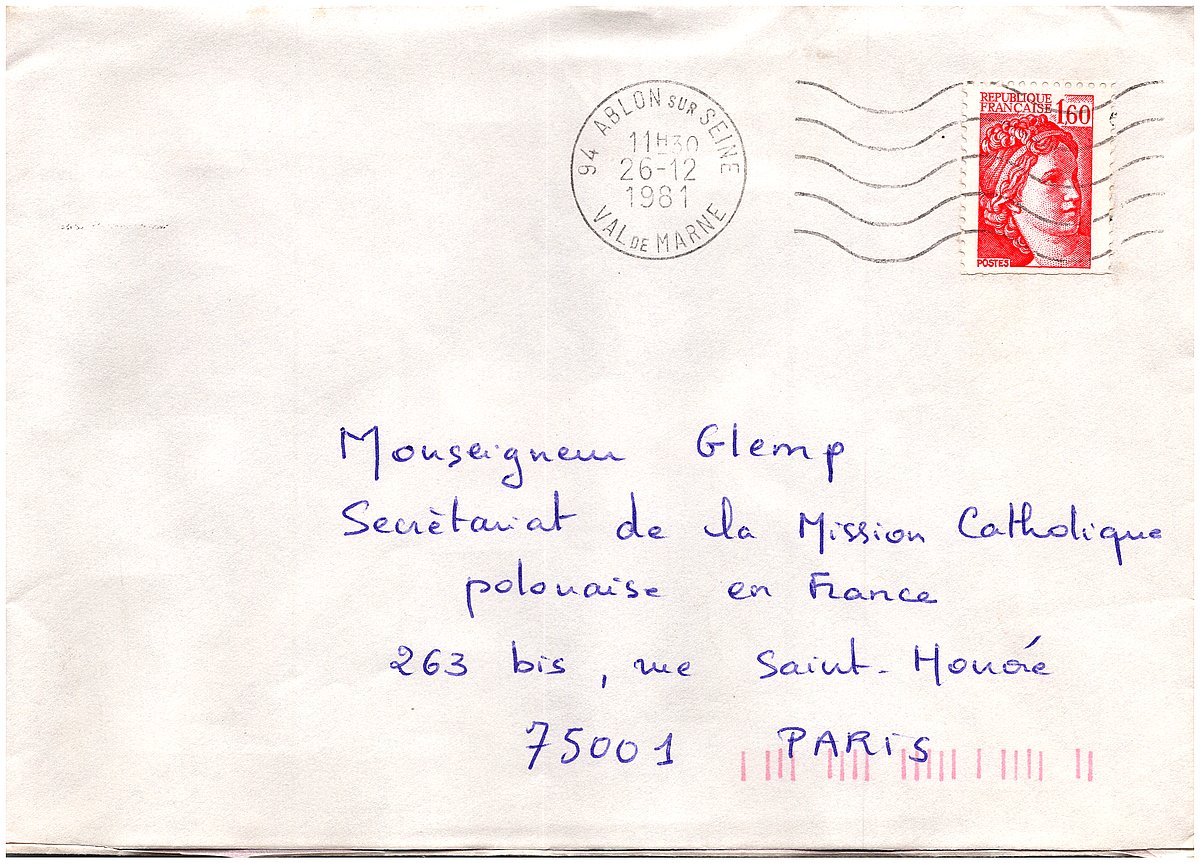 94 ABLON SUR SEINE
11H30
26-12
1981
VAL DE MARNE
REPUBLIQUE
FRANCAISE
1,60
POSTES
Monseigneur Glemp
Secrètariat de la Mission Catholique
polonaise en France
263 bis, rue Saint-Honoré
75001 PARIS